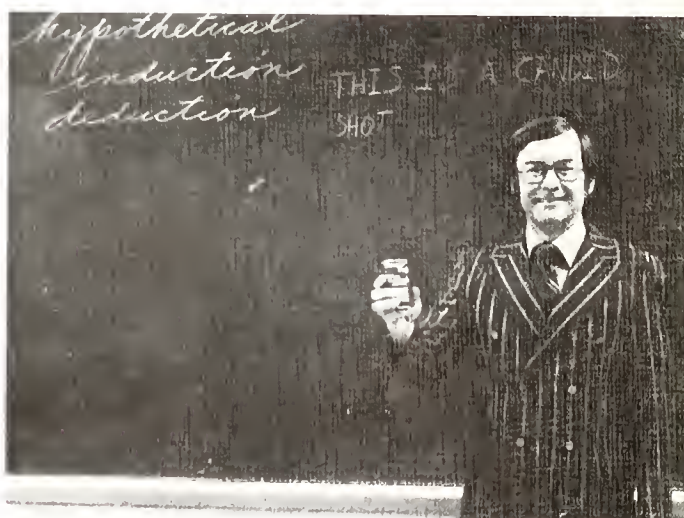 hypothetical
induction
deduction
THIS IS A CANDID
SHOT